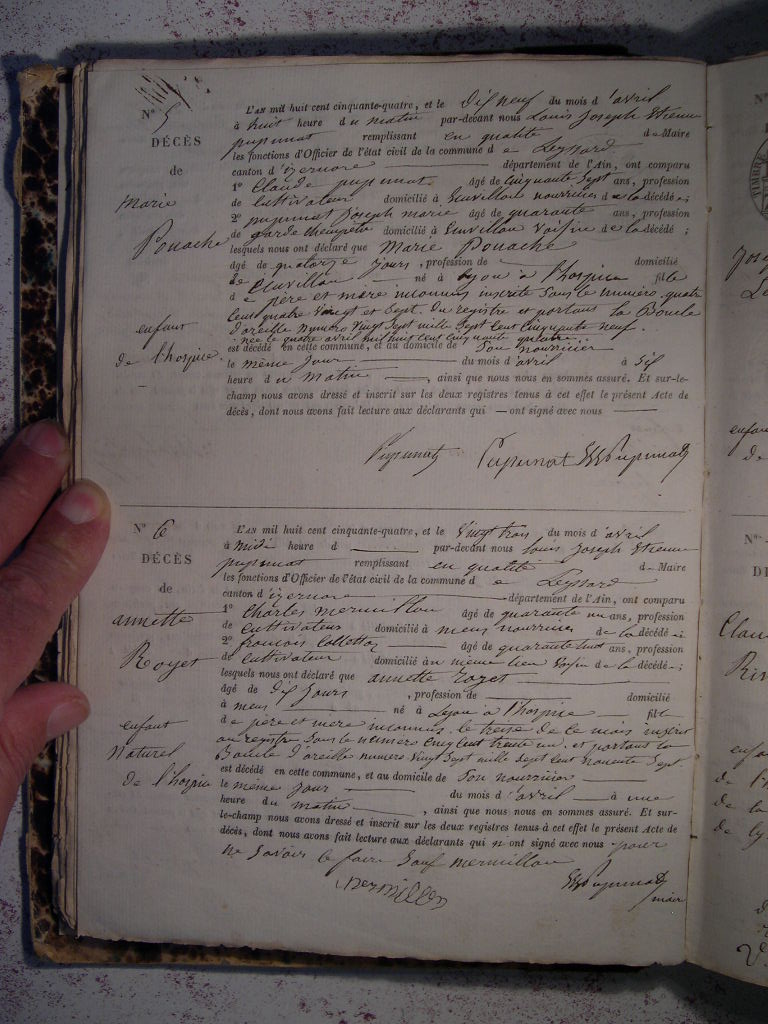 N° 5
DÉCÈS
de
marie
Pouache
enfant
de l'hospice.
L'AN mil huit cent cinquante-quatre, et le Dix neuf du mois d'avril
à huit heure du matin par-devant nous Louis Joseph Etienne
pupunat remplissant en qualité de Maire
les fonctions d'Officier de l'état civil de la commune de Leyssard
canton d'izernore département de l'Ain, ont comparu
1° Claude pupunat âgé de Cinquante Sept ans, profession
de Cultivateur domicilié à Leuvillon nourricier de la décédée;
2° pupunat Joseph marie âgé de quarante ans, profession
de garde champetre domicilié à Leuvillon Voisin de la décédé;
lesquels nous ont déclaré que Marie Pouache
âgé de quatorze jours, profession de domicilié
de Leuvillon né à Lyon à l'hospice fille
de père et mère inconnus inscrite Sous le numéro quatre
Cent quatre Vingt et Sept. Du registre et portant la Boucle
d'oreille numero Vingt Sept mille Sept Cent Cinquante neuf.
née le quatre avril mil huit cent cinquante quatre
est décédé en cette commune, et au domicile de Son nourricier
le même jour du mois d'avril à Six
heure du matin, ainsi que nous nous en sommes assuré. Et sur-le-
champ nous avons dressé et inscrit sur les deux registres tenus à cet effet le présent Acte de
décès, dont nous avons fait lecture aux déclarants qui ont signé avec nous
Pupunat Pupunat Pupunat
N° 6
DÉCÈS
de
annette
Royet
enfant
Naturel
de l'hospice
L'AN mil huit cent cinquante-quatre, et le Vingt trois du mois d'avril
à Midi heure d par-devant nous Louis Joseph Etienne
pupunat remplissant en qualité de Maire
les fonctions d'Officier de l'état civil de la commune de Leyssard
canton d'izernore département de l'Ain, ont comparu
1° Charles mermillon âgé de quarante un ans, profession
de Cultivateur domicilié à mens nourricier de la décédée;
2° françois Collettaz âgé de quarante huit ans, profession
de Cultivateur domicilié au même lieu Voisin de la décédé;
lesquels nous ont déclaré que annette royet
âgé de Dix Jours, profession de domicilié
à mens né à Lyon à l'hospice fille
de père et mère inconnus, le treize de ce mois inscrit
au registre Sous le numero Cinq Cent trente un. et portant la
Boucle d'oreille numéro Vingt Sept mille Sept Cent nonante Sept
est décédé en cette commune, et au domicile de Son nourricier
le même jour du mois d'avril à une
heure du matin, ainsi que nous nous en sommes assuré. Et sur-
le-champ nous avons dressé et inscrit sur les deux registres tenus à cet effet le présent Acte de
décès, dont nous avons fait lecture aux déclarants qui n'ont signé avec nous pour
ne Savoir le faire Sauf mermillon
mermillon Pupunat
maire